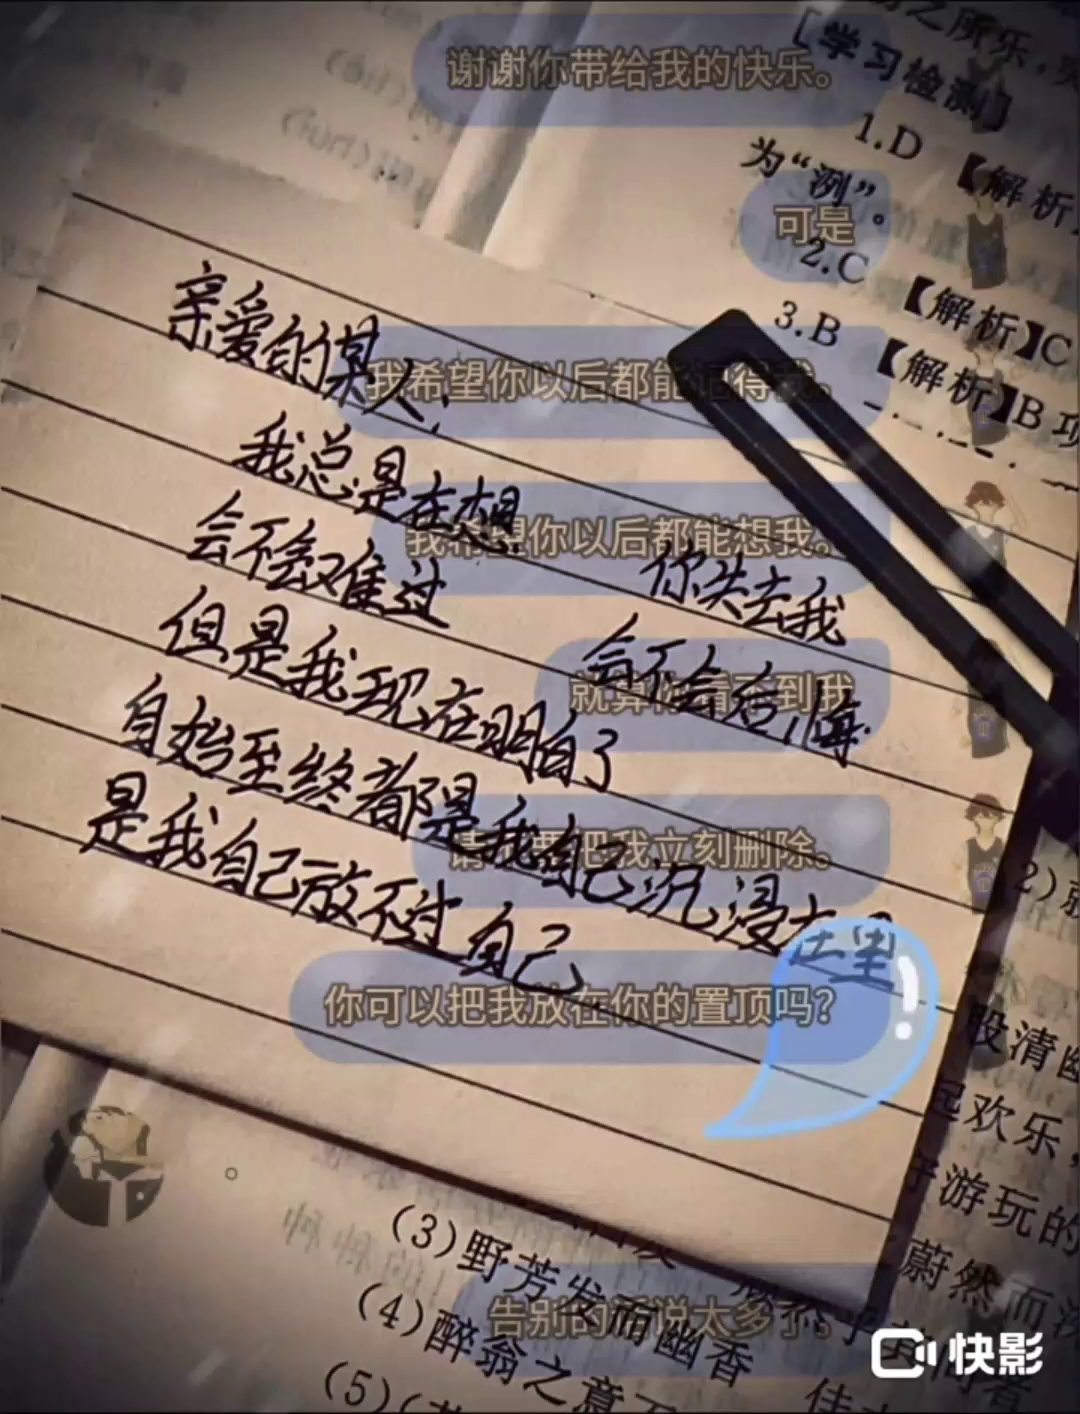 谢谢你带给我的快乐。
可是
我希望你以后都能记得我。
我希望你以后都能想我。
就算你看不到我
请不要把我立刻删除。
你可以把我放在你的置顶吗？
。
告别的话说太多了。
亲爱的某人:
我总是在想
你失去我
会不会难过
会不会后悔
但是我现在明白了
自始至终都是我自己沉浸在
是我自己放不过自己
之所乐，
［学习检测］
1.D 【解析】
为“洌”。
2.C 【解析】C
3.B 【解析】B项
2)
股清幽
起欢乐，
游玩的
蔚然而深
(3)野芳发而幽香 佳木
(4)醉翁之意不
(5)(
快影